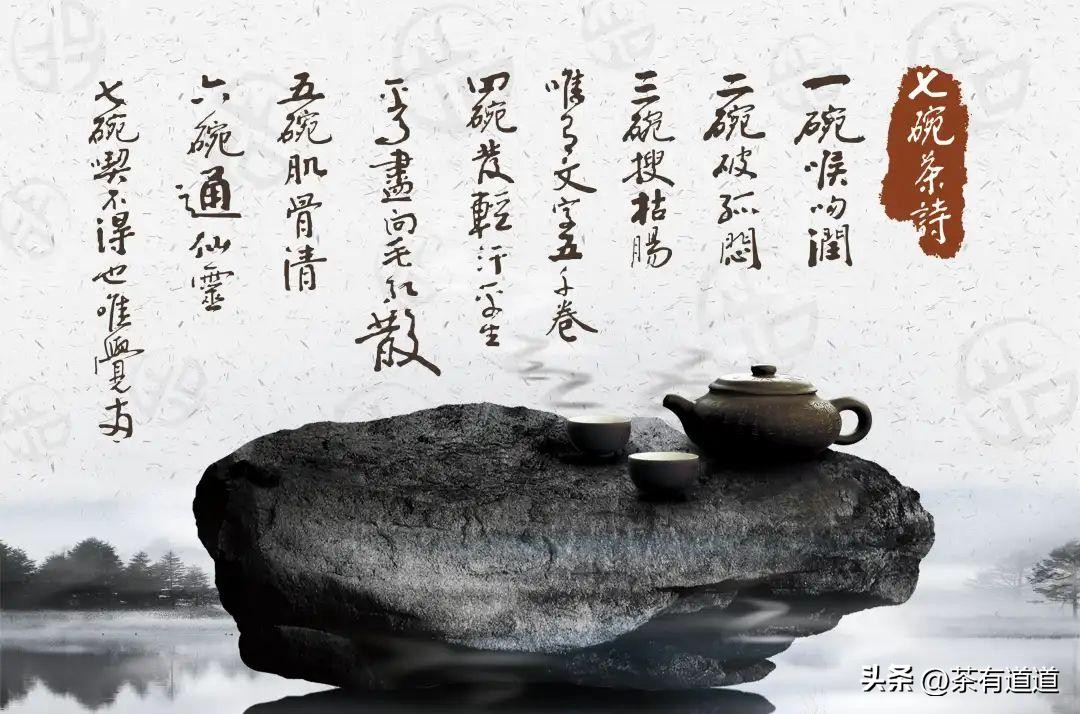 七碗茶詩
一碗喉吻潤
二碗破孤悶
三碗搜枯腸
唯有文字五千卷
四碗發輕汗平生
不平事盡向毛孔散
五碗肌骨清
六碗通仙靈
七碗喫不得也唯覺兩
头条 @茶有道道